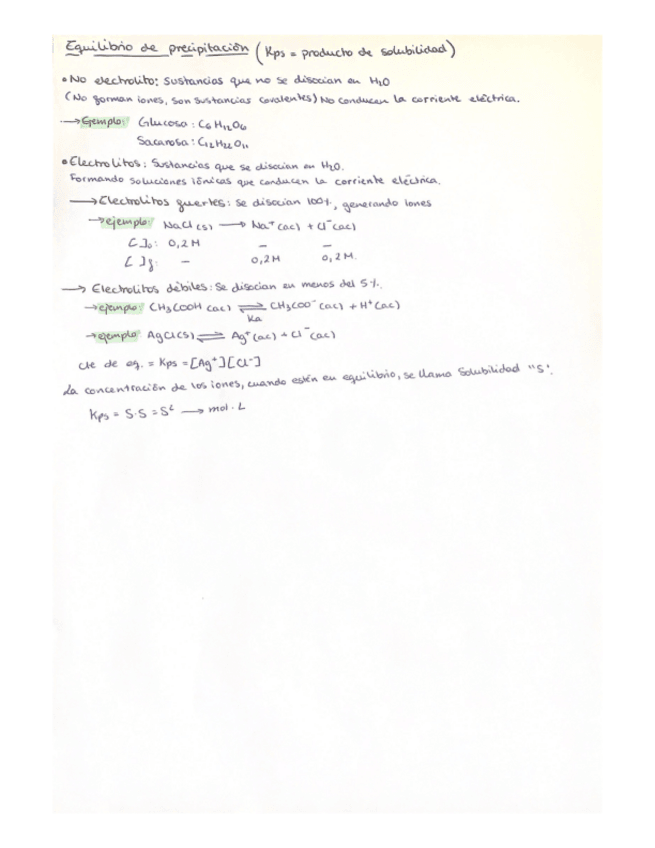 Equilibrio de precipitación (Kps = producto de solubilidad)
• No electrolito: Sustancias que no se disocian en H₂O
(No forman iones, son sustancias covalentes) No conducen la corriente eléctrica.
→ Ejemplo: Glucosa: C₆H₁₂O₆
Sacarosa: C₁₂H₂₂O₁₁
• Electrolitos: Sustancias que se disocian en H₂O.
Formando soluciones iónicas que conducen la corriente eléctrica.
→ Electrolitos fuertes: Se disocian 100%, generando iones
→ ejemplo: NaCl (s) → Na⁺ (ac) + Cl⁻ (ac)
[ ]₀: 0,2 M – –
[ ]f: – 0,2M 0,2 M.
→ Electrolitos débiles: Se disocian en menos del 5%.
→ ejemplo: CH₃COOH (ac) ⇌ CH₃COO⁻ (ac) + H⁺ (ac)
Ka
→ ejemplo AgCl (s) ⇌ Ag⁺ (ac) + Cl⁻ (ac)
cte de eq. = Kps = [Ag⁺][Cl⁻]
La concentración de los iones, cuando estén en equilibrio, se llama Solubilidad "S".
Kps = S·S = S² → mol·L